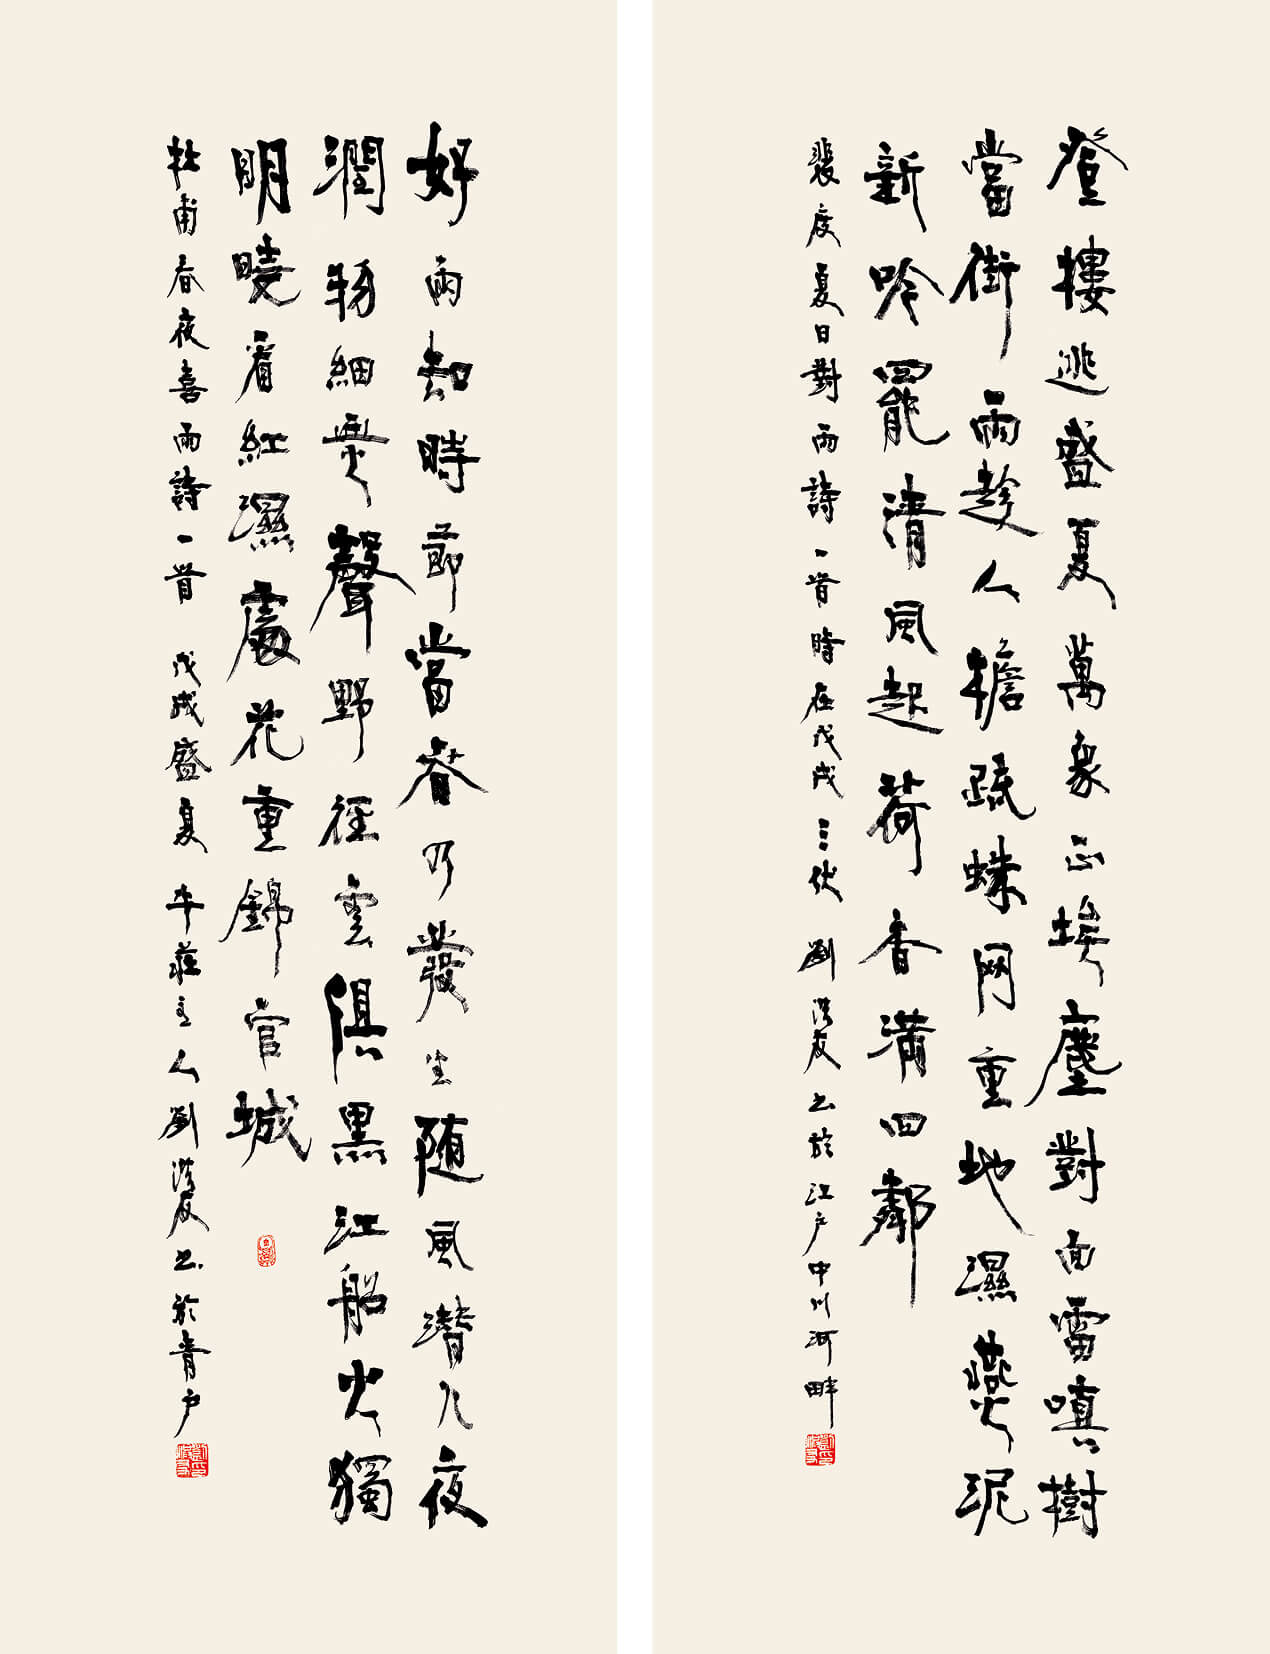 登樓逃盛夏萬象正埃塵對面雷嗔樹
當街雨趁人檐疏蛛网重地濕燕泥
新吟罷清風起荷香滿四鄰
裴度夏日對雨詩一首時在戊戌三伏 劉洪友书於江户中川河畔
好雨知時節當春乃發生随風潜入夜
潤物細無聲野徑雲俱黑江船火獨
明曉看紅濕處花重錦官城
杜甫春夜喜雨詩一首 戊戌盛夏 牛莊主人劉洪友书於青户